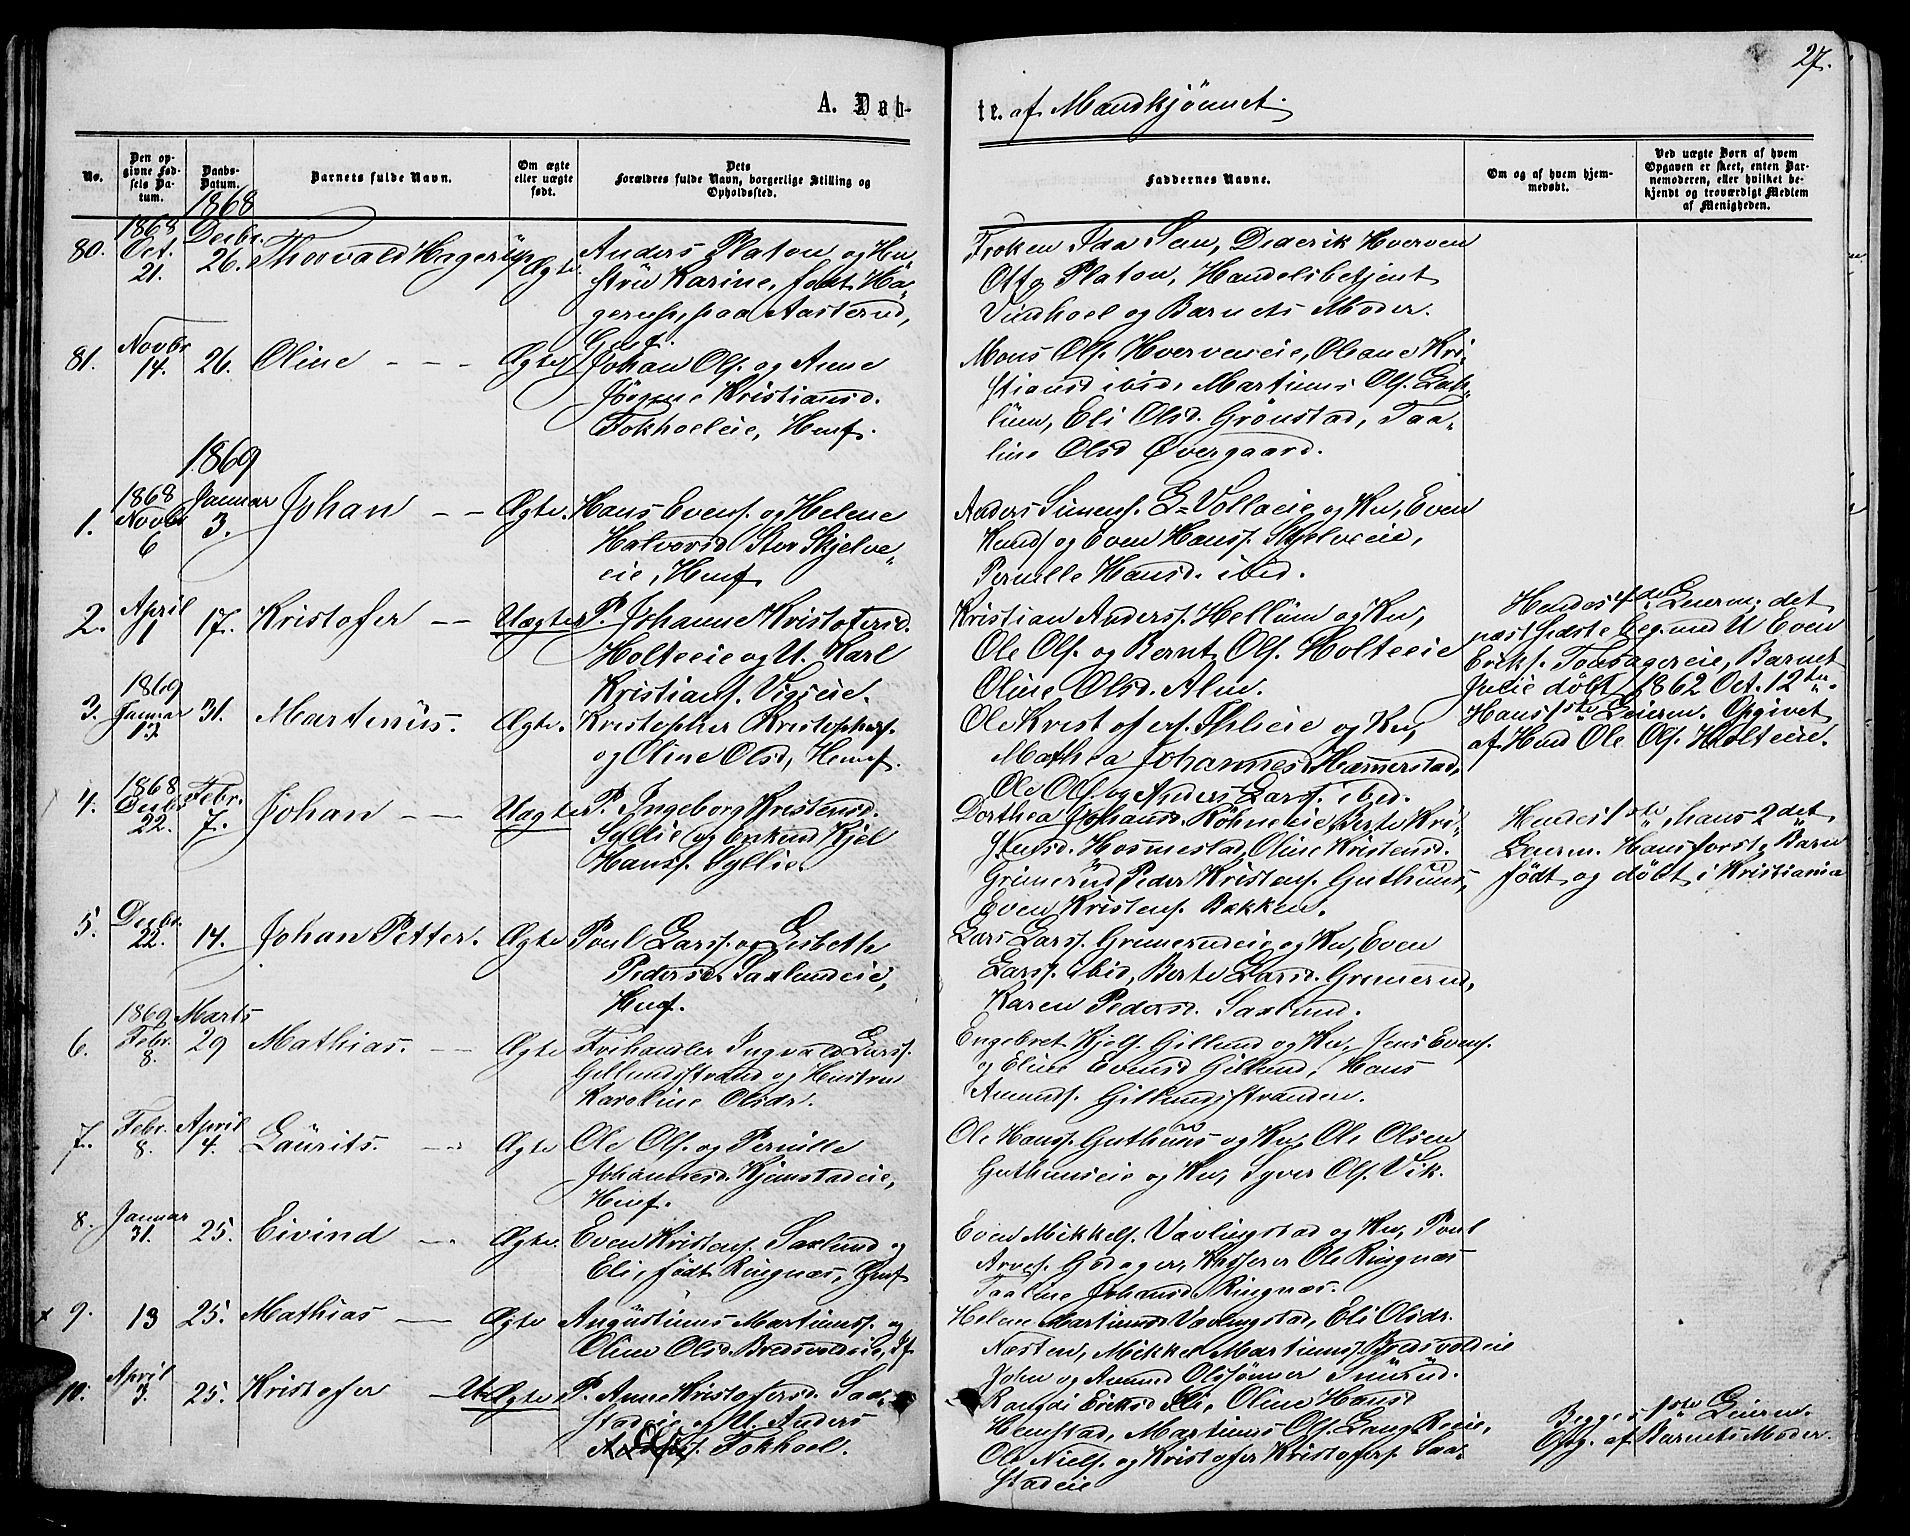 27.
A. Døb-
te. af Mandkjønnet.
No.
Den op-
givne Fød-
sels Da-
tum.
Daabs-
Datum.
Barnets fulde Navn.
Om ægte
eller uægte
født.
Dets
Forældres fulde Navn, borgerlige Stilling og
Opholdssted.
Faddernes Navne.
Om og af hvem hjem-
medøbt.
Ved uægte Børn af hvem
Opgaven er skeet, enten Bar-
nemoderen, eller hvilket be-
kjendt og troværdigt Medlem
af Menigheden.
1868 1868
80. Oct. 21. Decbr. 26. Thorvald Hagerup Ægte.
Anders Platou og Hu-
stru Karine, født Ha-
gerup, paa Aasterud,
Frøken Sem, Dederik Hverven
Otto Platou, Handelsbetjent
og Barnets Moder.
81. Novbr 14. 26. Oline - - - Ægte
Johan Ols. og Anne
Kristiansd.
Fokholeie, Hemf.
Mons Ols. Hverveneie, Oleane Kri-
stiansd ibid, Martinus Ols.
Eli Olsd. Grønstad, Taa-
line Olsd Øvergaard.
1869
1. 1868 Novbr 6 Januar 3. Johan - - Ægte.
Hans Evens. og Helene
Halvorsd. Stor Skjelve-
eie, Hemf
Anders Simens. L-Vollaeie og Ku, Even
Knuds og Even Hanss. Skjelveeie,
Pernille Hansd. ibid.
2. April 1 17. Kristofer -- Uægte
P. Johanne Kristofersd.
Holteeie og U. Karl
Kristians. Vigseie.
Kristian Anderss. Hellum og Ku,
Ole Ols. og Bernt Ols. Holteeie
Oline Olsd. Alm.
Hendes 4de Leierm; det
næstsidste beg. med U Even
Eriks. Barnet
døbt 1862 Oct. 12te.
Hans 1ste Leierm. Opgivet
af Hmd Ole Ols. Holteeie.
3. 1869 Januar 13. 31. Martinus. Ægte.
Kristopher Kristophers.
og Oline Olsd, Hemf.
Ole Kristofers. og Ku,
Mathea Johannesd Hammerstad,
Ole Ols og Anders Larss. ibid.
4. 1868 Decbr 22. Febr. 7. Johan -- Uægte
P. Ingeborg Kristensd.
Syllie og Enkemd Kjel
Hanss. Syllie.
Dorthea Johansd. Berte Kri-
stensd. Hosmestad, Oline Kristensd.
Grimerud, Peder Kristens. Guthuus,
Even Kristens. Bakken.
Hendes 1ste, hans 2det
Leierm. Hans første Barn
født og døbt i Kristiania
5. Decbr. 22. 14. Johan Petter. Ægte
Poul Larss. og Lisbeth
Pedersd. Saxlundeie,
Hemf.
Lars Larss. Grimerudeie og Ku, Even
Larss. ibid, Berte Larsd. Grimerud,
Karen Pedersd. Saxlund.
6. 1869 Febr. 8. Marts 29 Mathias. -- Ægte
Frihandler Ingvald Larss.
Gillundsstrand og Hustru
Karoline Olsdr.
Engebret Kjels. Gillund og Ku, Jens Evens.
og Eline Evensd Gillund, Hans
Amunds. Gillundsstranden.
7. Febr. 8. April 4. Laurits. -- Ægte
Ole Ols. og Pernille
Johannesd. Kjemstadeie,
Hemf.
Ole Hanss. Guthuus og Ku, Ole Olsen
Guthuuseie og Ku, Syver Ols. Vik.
8. Januar 31. 25. Eivind -- Ægte.
Even Kristens. Saxlund og
Eli, født Ringnæs, Hemf
Even Mikkels. Vævlingstad og Ku, Poul
Arnes. Godager, Kasserer Ole Ringnæs
Taaline Johansd Ringnæs.
x 9. 13 25. Mathias -- Ægte
Augustinus Martinuss. og
Oline Olsd. Bredsvoldeie,
Helene Martinusd Vævlingstad, Eli Olsdr.
Næsten, Mikkel Martinuss. Bredsvoldeie
John og Amund Olssønner
10. April 3. 25. Kristofer -- Uægte
P. Anne Kristofersd. Saa-
stadeie og U. Anders
Ols. Fokhoel.
Rangdi Eriksd Lie, Oline Hansd
Hemstad, Martinus Ols.
Ole Niels. og Kristofer Kristofers. Saa-
stadeie
Begges 1ste Leierm.
Opg. af Barnets Moder.